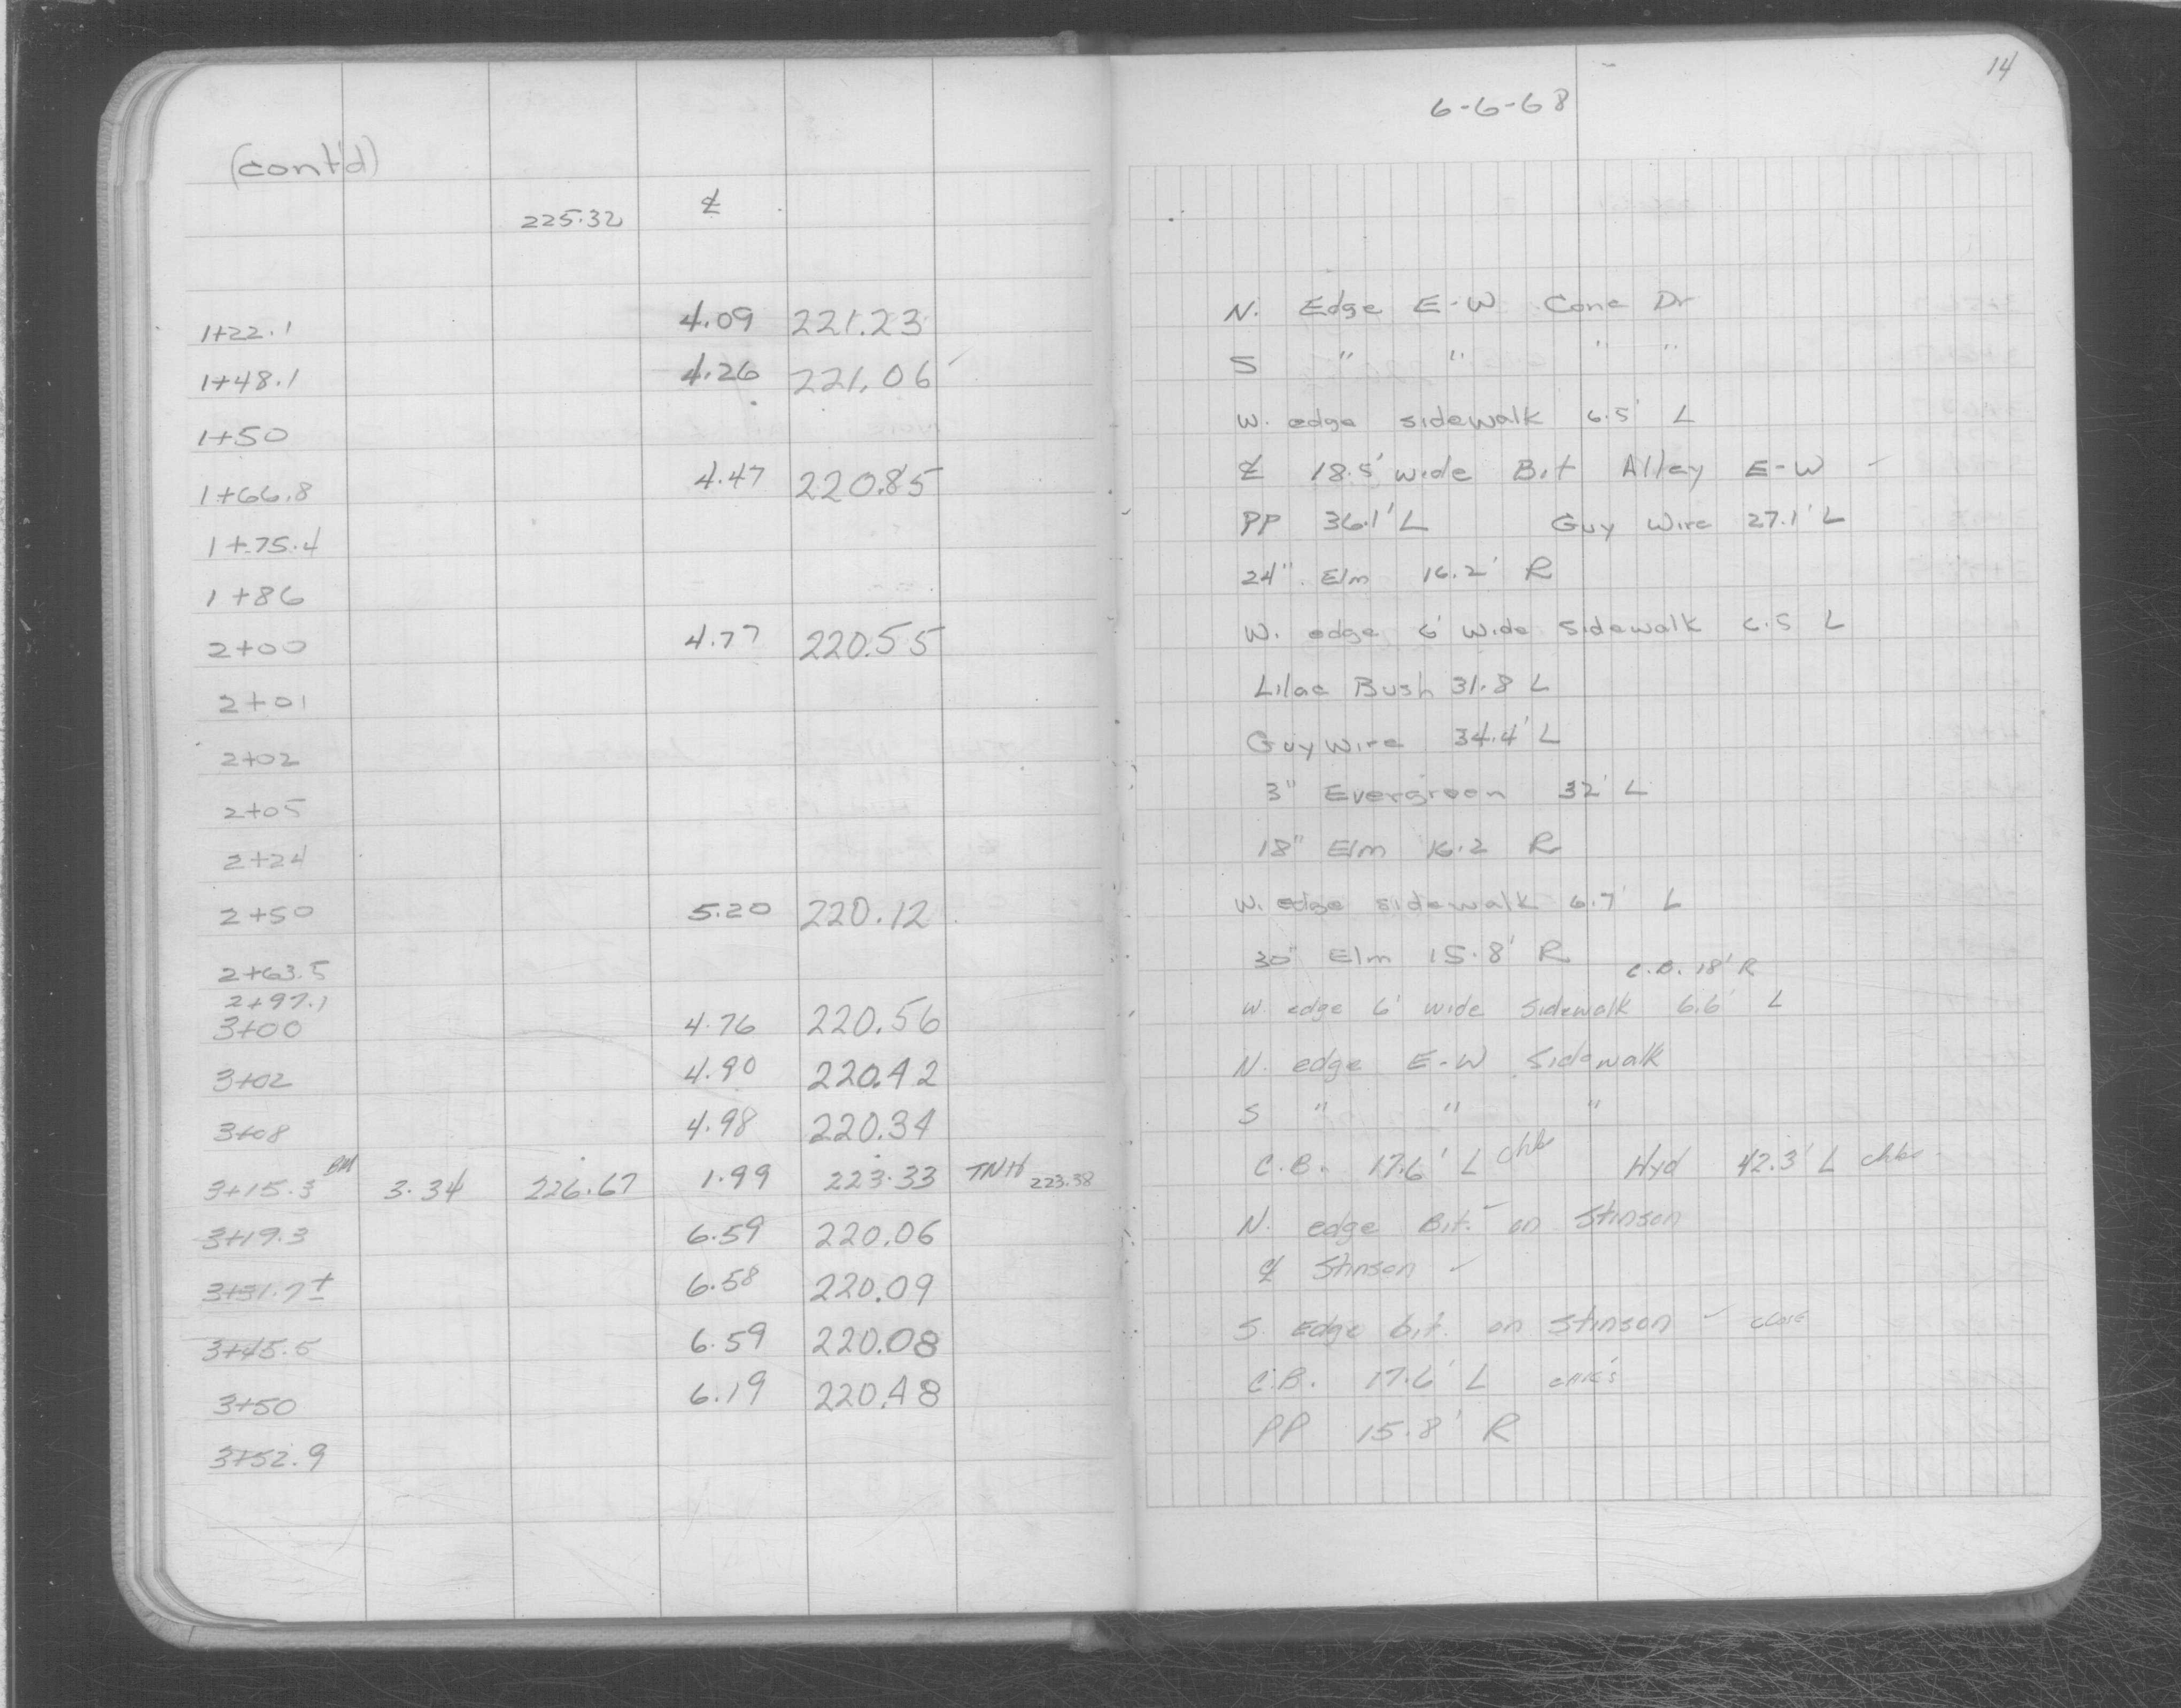 14
6-6-68
(cont'd)
225.32 ℄
1+22.1 4.09 221.23 N. Edge E-W Conc Dr
1+48.1 4.26 221.06 S " " " "
1+50 W. edge sidewalk 6.5' L
1+66.8 4.47 220.85 ℄ 18.5' wide Bit Alley E-W
1+75.4 PP 36.1' L Guy Wire 27.1' L
1+86 24" Elm 16.2' R
2+00 4.77 220.55 W. edge 6' Wide Sidewalk 6.5 L
2+01 Lilac Bush 31.8 L
2+02 Guy Wire 34.4' L
2+05 3" Evergreen 32' L
2+24 18" Elm 16.2 R
2+50 5.20 220.12 W. edge sidewalk 6.7' L
2+63.5 30" Elm 15.8' R
2+97.1 C.B. 18' R
3+00 4.76 220.56 W. edge 6' wide Sidewalk 6.6' L
3+02 4.90 220.42 N. edge E-W Sidewalk
3+08 4.98 220.34 S " " "
3+15.3 BM 3.34 226.67 1.99 223.33 TNH 223.38 C.B. 17.6' L chks Hyd 42.3' L chks
3+19.3 6.59 220.06 N. edge Bit. on Stinson
3+31.7± 6.58 220.09 ℄ Stinson
3+45.5 6.59 220.08 S. Edge bit. on Stinson close
3+50 6.19 220.48 C.B. 17.6' L chk's
3+52.9 PP 15.8' R